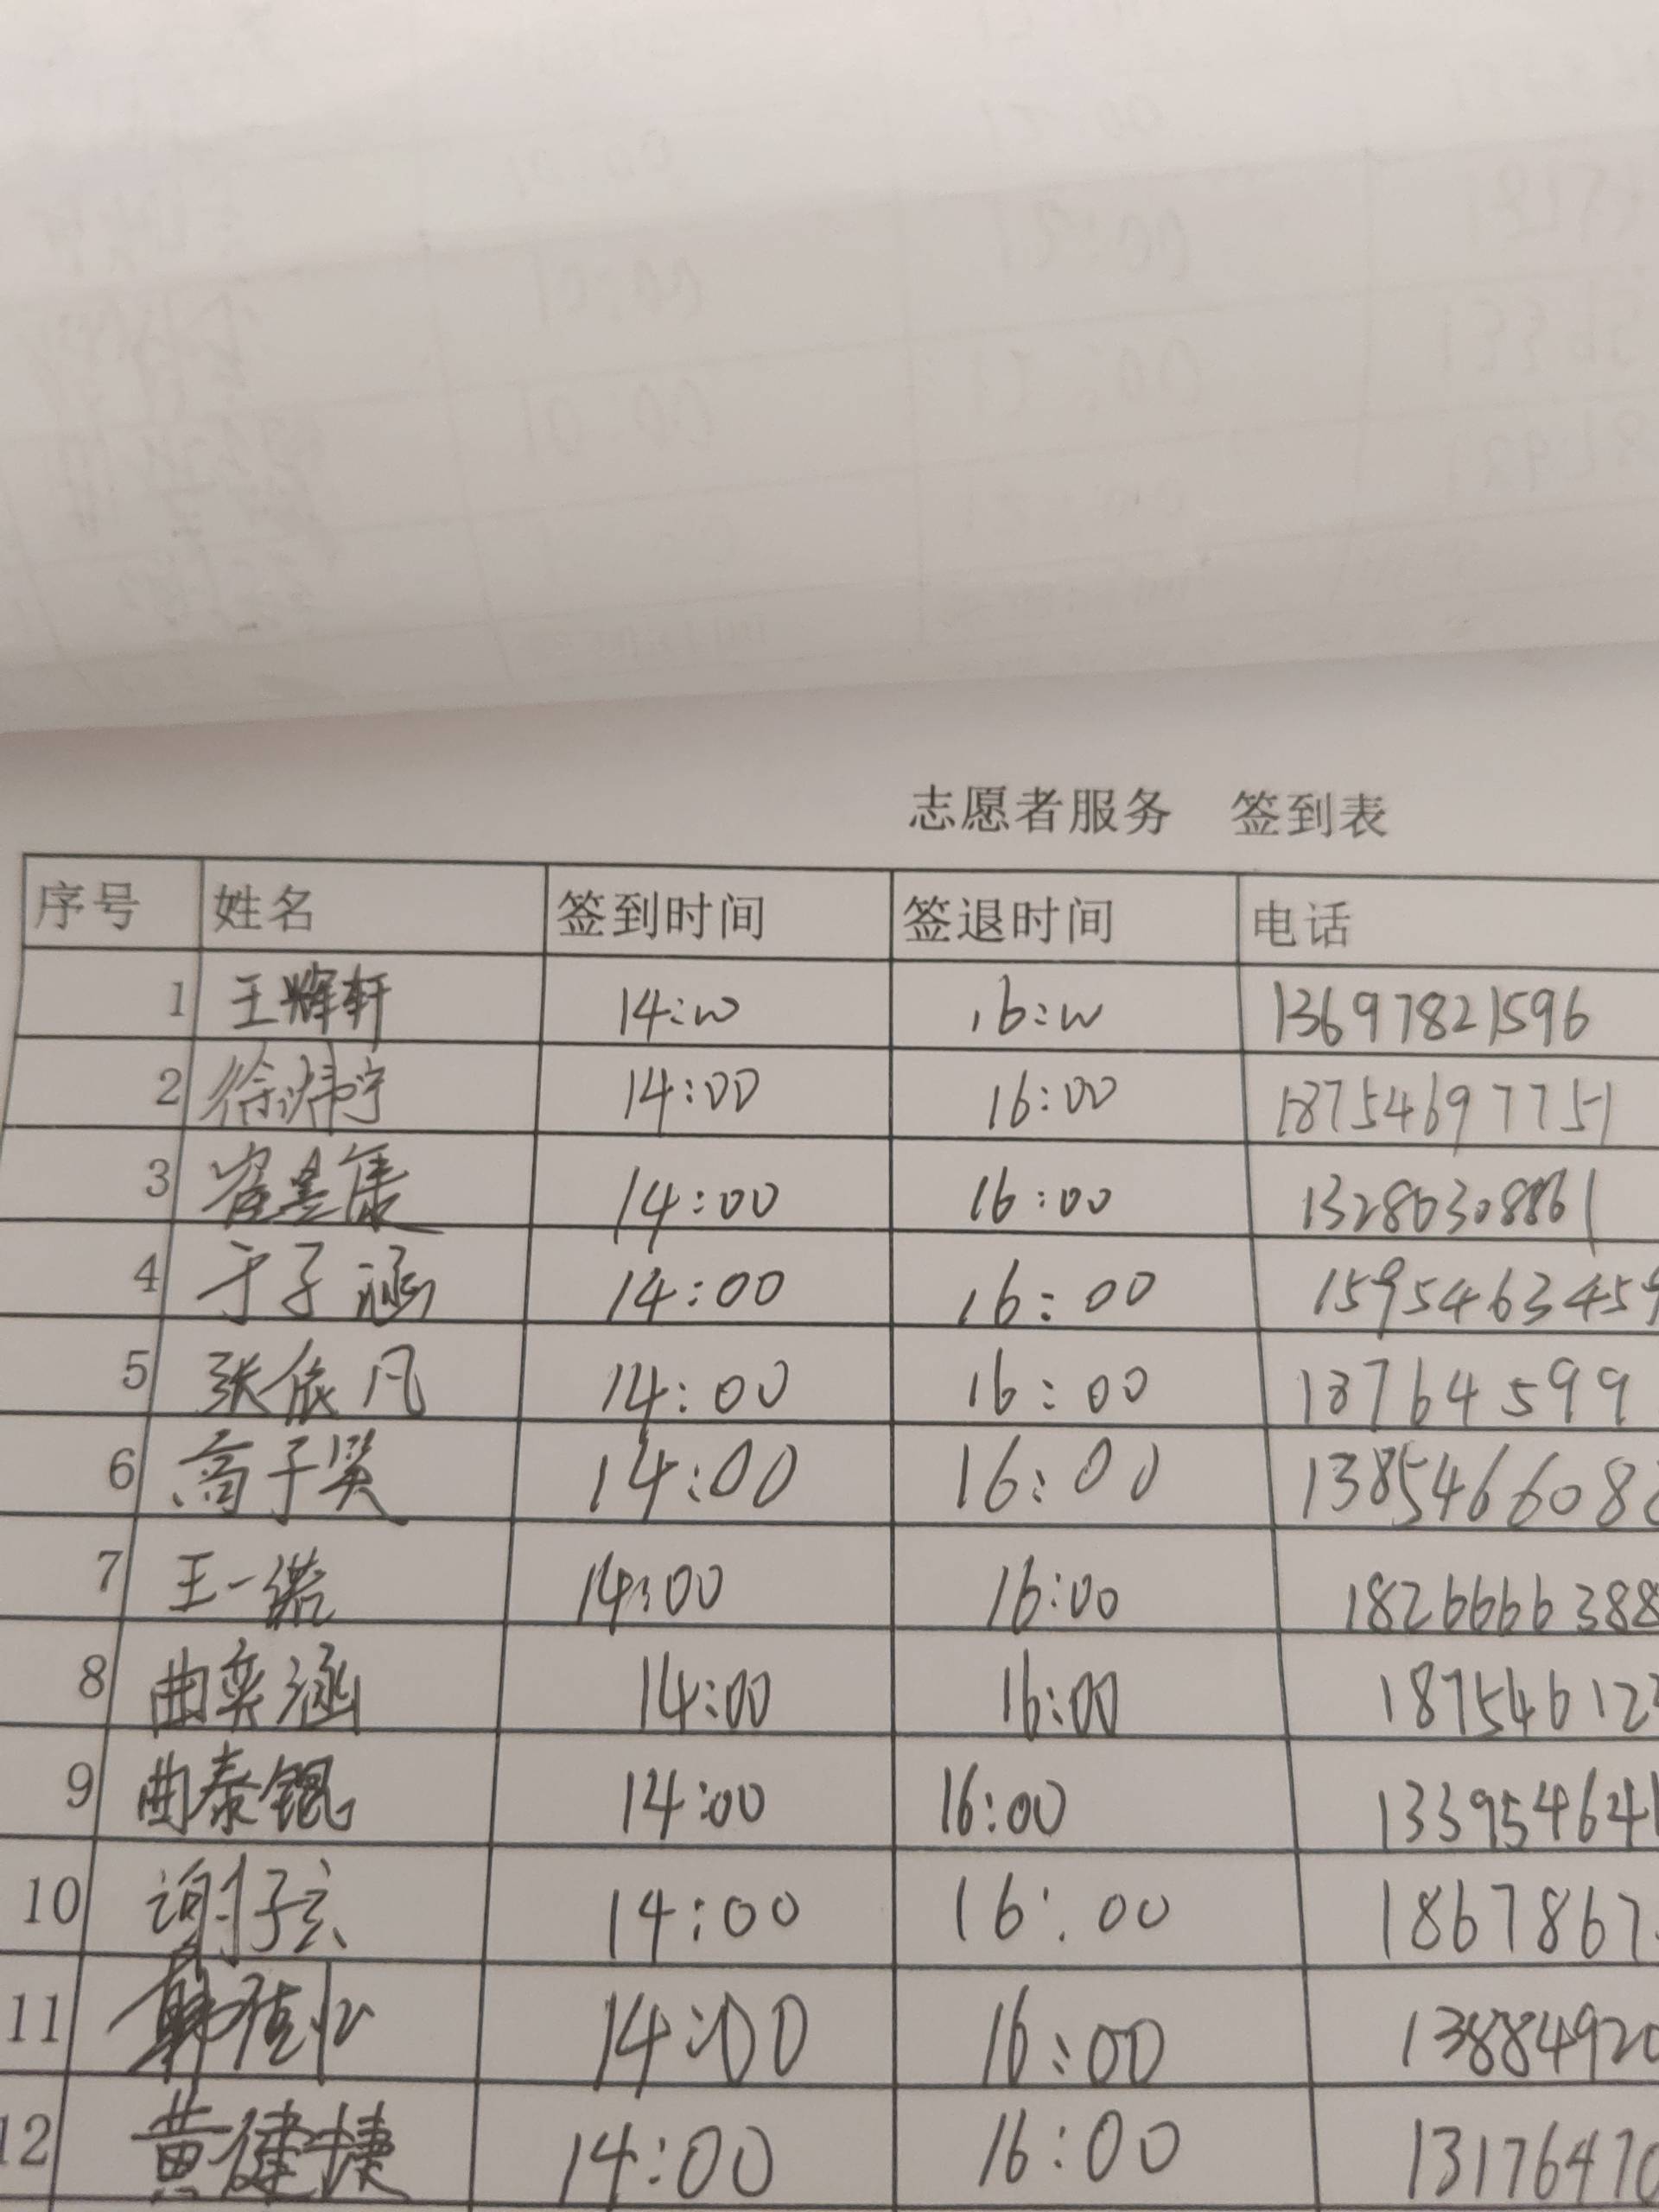 志愿者服务 签到表
序号 姓名 签到时间 签退时间 电话
1 王辉轩 14:00 16:00 13697821596
2 徐炜宁 14:00 16:00 18754697751
3 14:00 16:00
4 于子涵 14:00 16:00 1595463459
5 张依凡 14:00 16:00 18764599
6 高子昊 14:00 16:00 1385466088
7 王一诺 14:00 16:00 1826666388
8 曲奕涵 14:00 16:00 187546122
9 曲泰锟 14:00 16:00 133954641
10 谢子玄 14:00 16:00 1867867
11 14:00 16:00 13884920
12 黄健捷 14:00 16:00 13176470